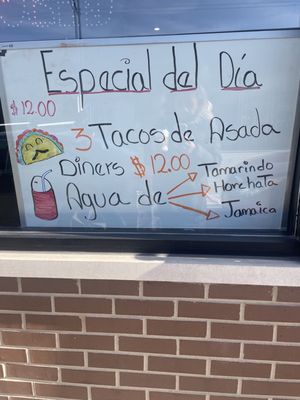 Especial del Día
$12.00
3 Tacos de Asada
Diners $12.00
Agua de
Tamarindo
Horchata
Jamaica